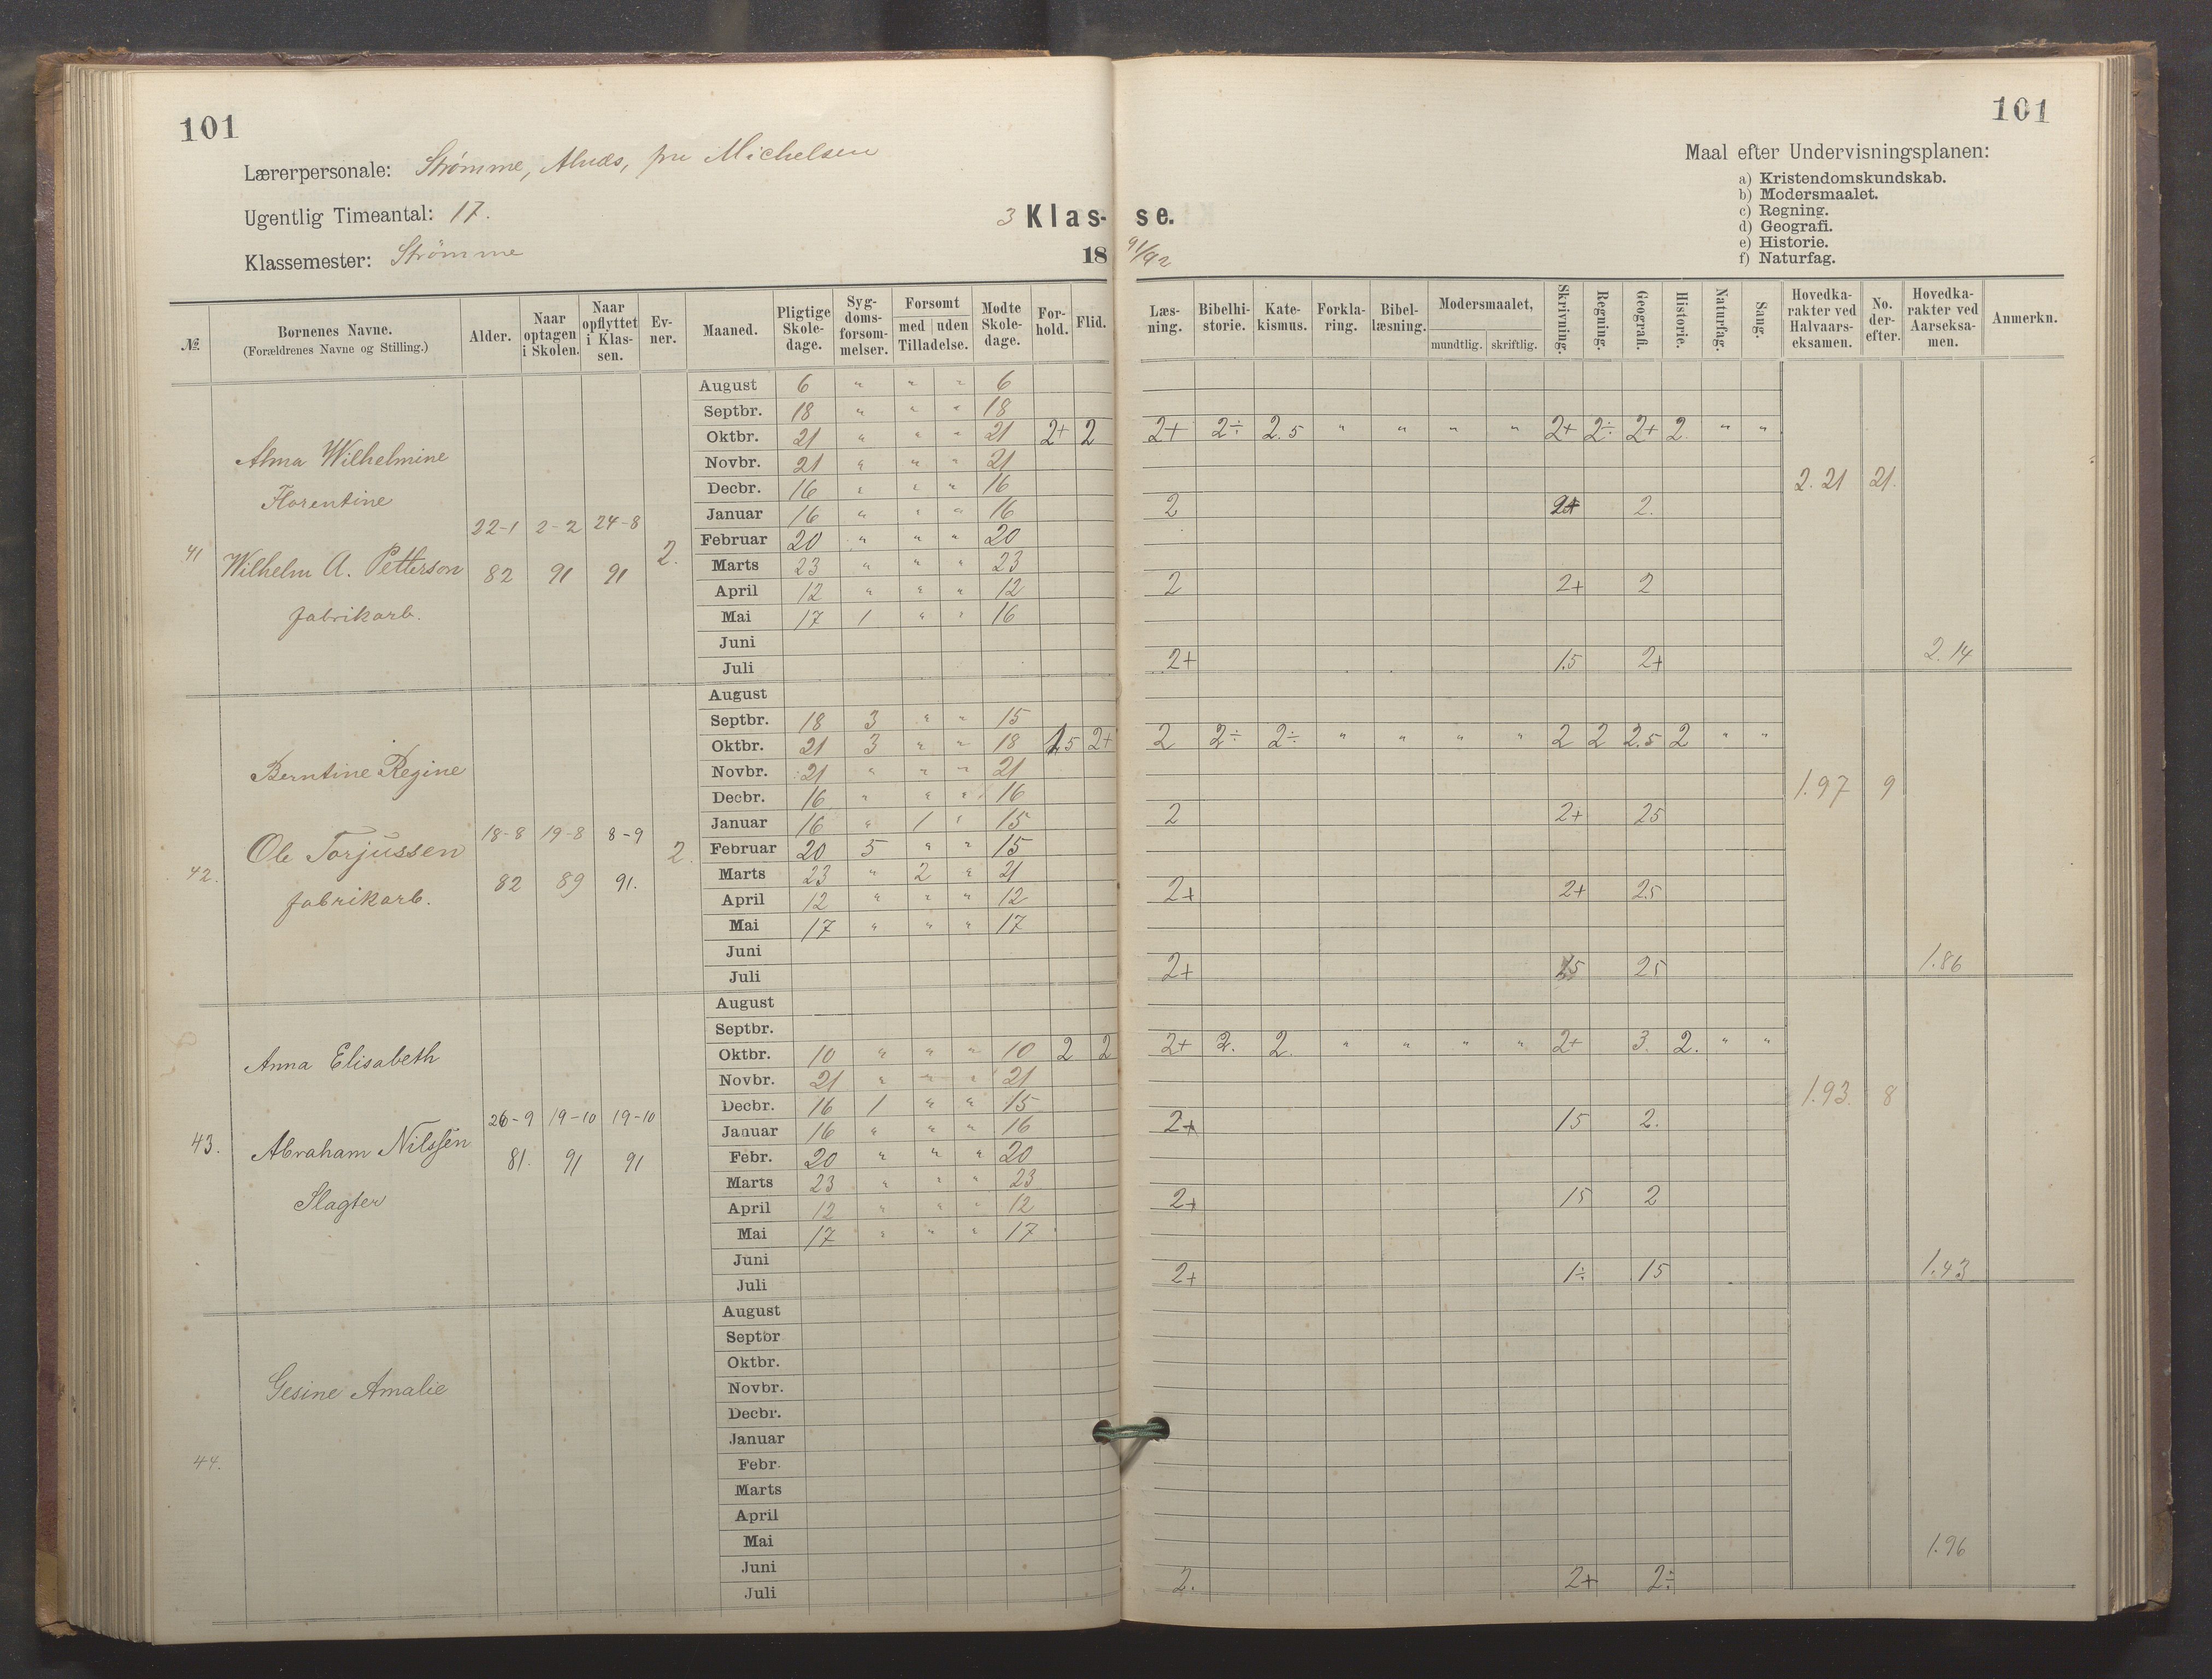 101
101
Lærerpersonale: Strømme, Alnæs, fru Michelsen
Ugentlig Timeantal: 17.
Klassemester: Strömme
3 Klas- se.
18 91/92
Maal efter Undervisningsplanen:
a) Kristendomskundskab.
b) Modersmaalet.
c) Regning.
d) Geografi.
e) Historie.
f) Naturfag.
№ Børnenes Navne. (Forældrenes Navne og Stilling.) Alder. Naar optagen i Skolen. Naar opflyttet i Klassen. Evner. Maaned. Pligtige Skoledage. Sygdomsforsømmelser. Forsømt med uden Tilladelse. Mødte Skoledage. Forhold. Flid. Læsning. Bibelhistorie. Katekismus. Forklaring. Bibellæsning. Modersmaalet, mundtlig. skriftlig. Skrivning. Regning. Geografi. Historie. Naturfag. Sang. Hovedkarakter ved Halvaarseksamen. No. derefter. Hovedkarakter ved Aarseksamen. Anmerkn.
41 Alma Wilhelmine
Florentine
Wilhelm A. Petterson
fabrikarb.
22-1 2-2 24-8
82 91 91
2.
August 6 " " " 6
Septbr. 18 " " " 18
Oktbr. 21 " " " 21 2+ 2 2+ 2÷ 2.5 " " " " 2+ 2÷ 2+ 2 " "
Novbr. 21 " " " 21
Decbr. 16 " " " 16 2.21 21.
Januar 16 " " " 16 2 2+ 2.
Februar 20 " " " 20
Marts 23 " " " 23
April 12 " " " 12 2 2+ 2
Mai 17 1 " " 16
Juni
Juli 2+ 1.5 2+ 2.14
42. Berntine Regine
Ole Torjussen
fabrikarb.
18-8 19-8 8-9
82 89 91.
2.
August
Septbr. 18 3 " " 15
Oktbr. 21 3 " " 18 1.5 2+ 2 2÷ 2÷ " " " " 2 2 2.5 2 " "
Novbr. 21 " " " 21
Decbr. 16 " " " 16 1.97 9
Januar 16 " 1 " 15 2 2+ 25
Februar 20 5 " " 15
Marts 23 " 2 " 21
April 12 " " " 12 2+ 2+ 2.5
Mai 17 " " " 17
Juni
Juli 2+ 15 25 1.86
43. Anna Elisabeth
Abraham Nilssen
Slagter
26-9 19-10 19-10
81. 91 91
August
Septbr.
Oktbr. 10 " " " 10 2 2 2+ 2. 2. " " " " 2+ 3. 2. " "
Novbr. 21 " " " 21
Decbr. 16 1 " " 15 1.93. 8
Januar 16 " " " 16 2+ 15 2.
Febr. 20 " " " 20
Marts 23 " " " 23
April 12 " " " 12 2+ 15 2
Mai 17 " " " 17
Juni
Juli 2+ 1÷ 15 1.43
44. Gesine Amalie
August
Septbr
Oktbr.
Novbr.
Decbr.
Januar
Febr.
Marts
April
Mai
Juni 1.96
Juli 2. 2+ 2÷